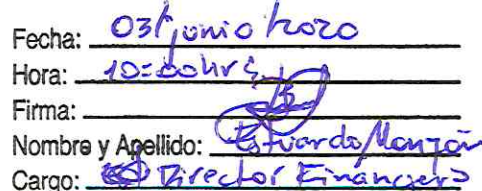 Fecha: 03/junio/2020
Hora: 10:00hrs
Firma:
Nombre y Apellido: Estuardo Monzón
Cargo: Director Financiero